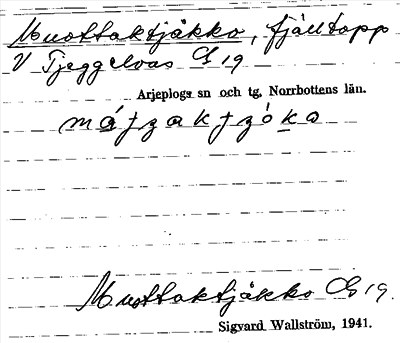 Muottaktjåkko, fjälltopp
V Tjeggelvas G 19
Arjeplogs sn och tg, Norrbottens län.
Muottaktjåkko G 19.
Sigvard Wallström, 1941.